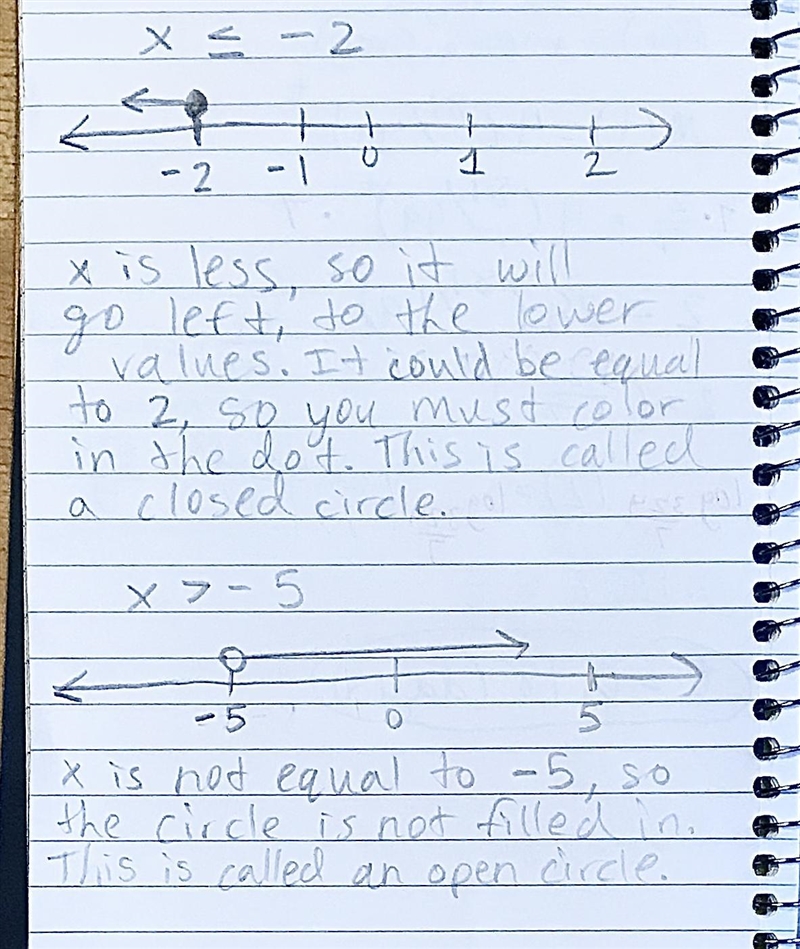 x ≤ -2
-2 -1 0 1 2
x is less, so it will
go left, to the lower
values. It could be equal
to 2, so you must color
in the dot. This is called
a closed circle.
x > -5
-5 0 5
x is not equal to -5, so
the circle is not filled in.
This is called an open circle.